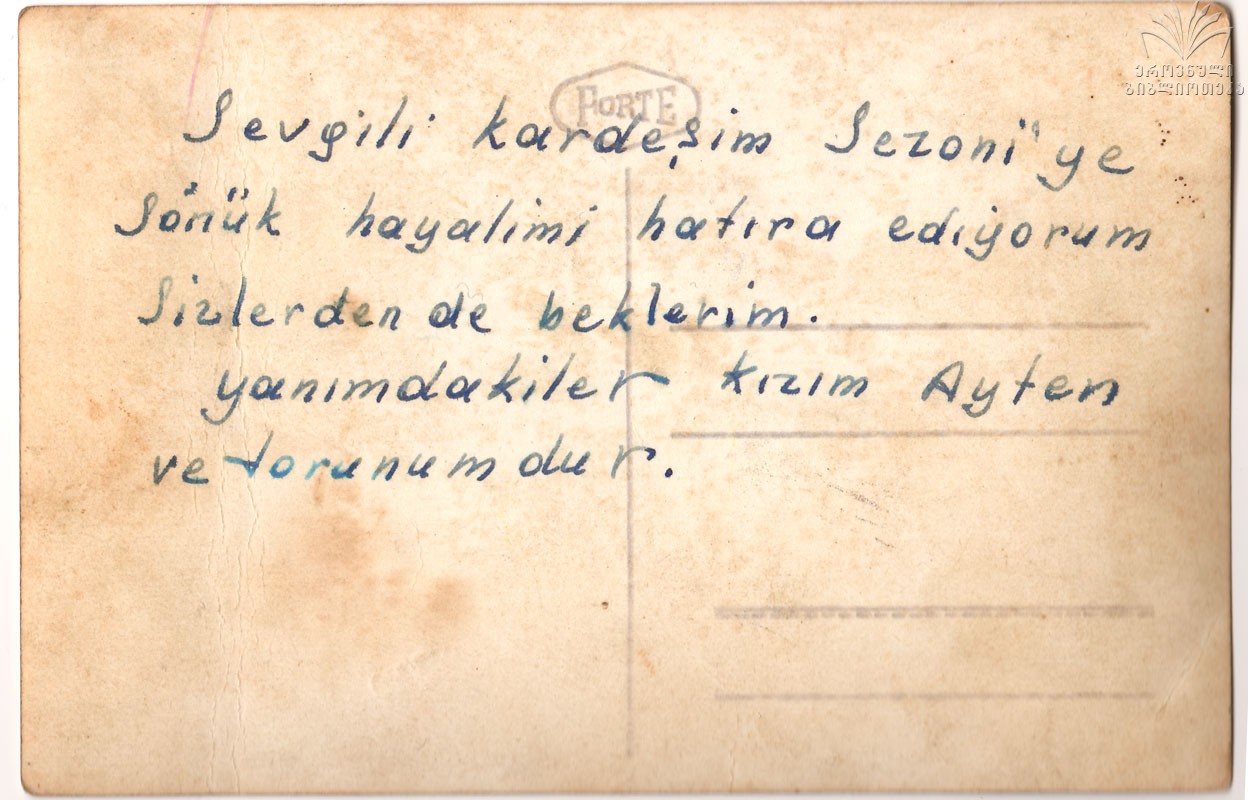 ეროვნული
ბიბლიოთეკა
FORTE
Sevgili kardeşim Sezoni"ye
Sönük hayalimi hatıra ediyorum
Sizlerden de beklerim.
yanımdakiler kızım Ayten
ve torunumdur.